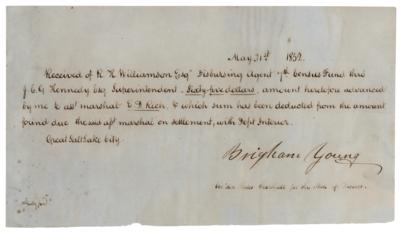 May 31st 1852.
Received of R H Williamson Esqr Disbursing Agent 7th Census Fund thro
J. C. G Kennedy Esq Superintendent. Sixty-five dollars, amount heretofore advanced
by me to asst marshal E D Rich, & which sum has been deducted from the amount
found due the said asst marshal on settlement, with Dept Interior.
Great Salt Lake City.
Brigham Young
for the